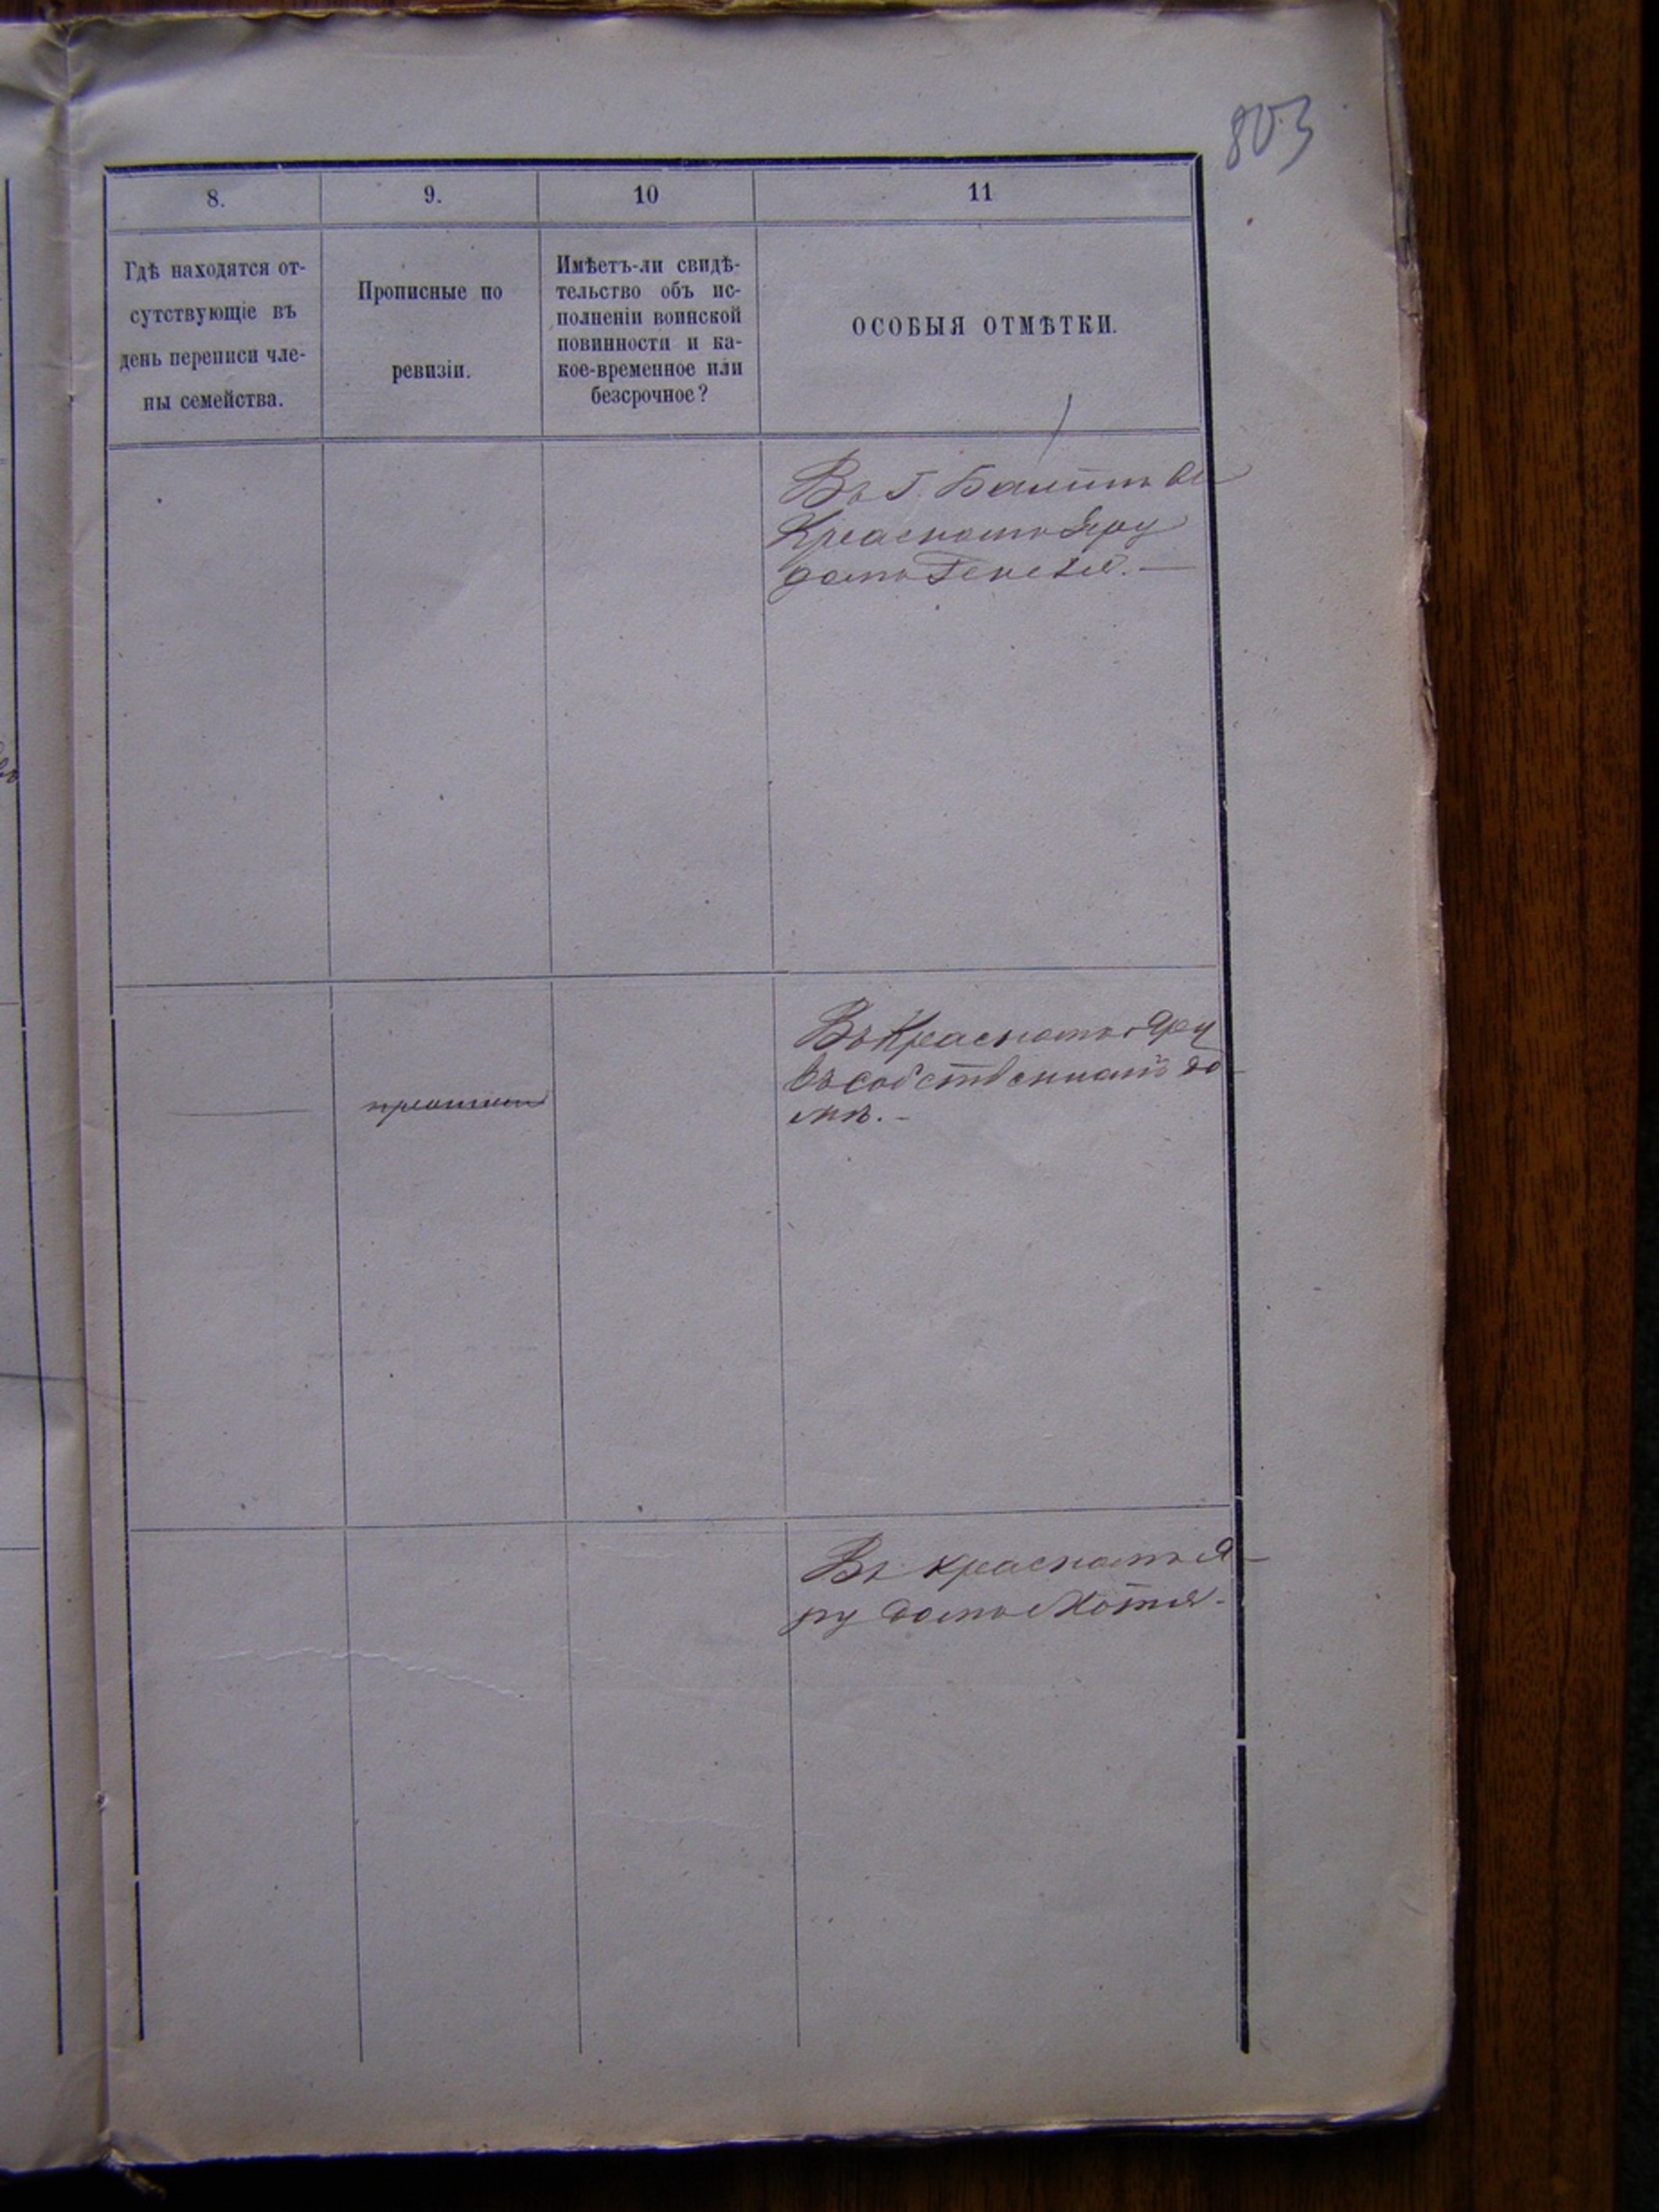 803
8.
9.
10
11
Гдѣ находятся от-
сутствующіе въ
день переписи чле-
ны семейства.
Прописные по
ревизіи.
Имѣетъ-ли свидѣ-
тельство объ ис-
полненіи воинской
повинности и ка-
кое-временное или
безсрочное?
ОСОБЫЯ ОТМѢТКИ.
Въ г. Балтѣ въ
Красномъ Яру
домъ
Въ Красномъ Яру
въ собственномъ до-
мѣ.-
Въ красномъ я-
ру домъ Мотня-